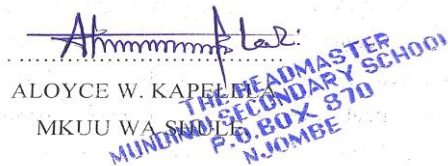 ALOYCE W. KAPELELA
MKUU WA SHULE
THE HEADMASTER
MUNDINDI SECONDARY SCHOOL
P.O.BOX 870
NJOMBE